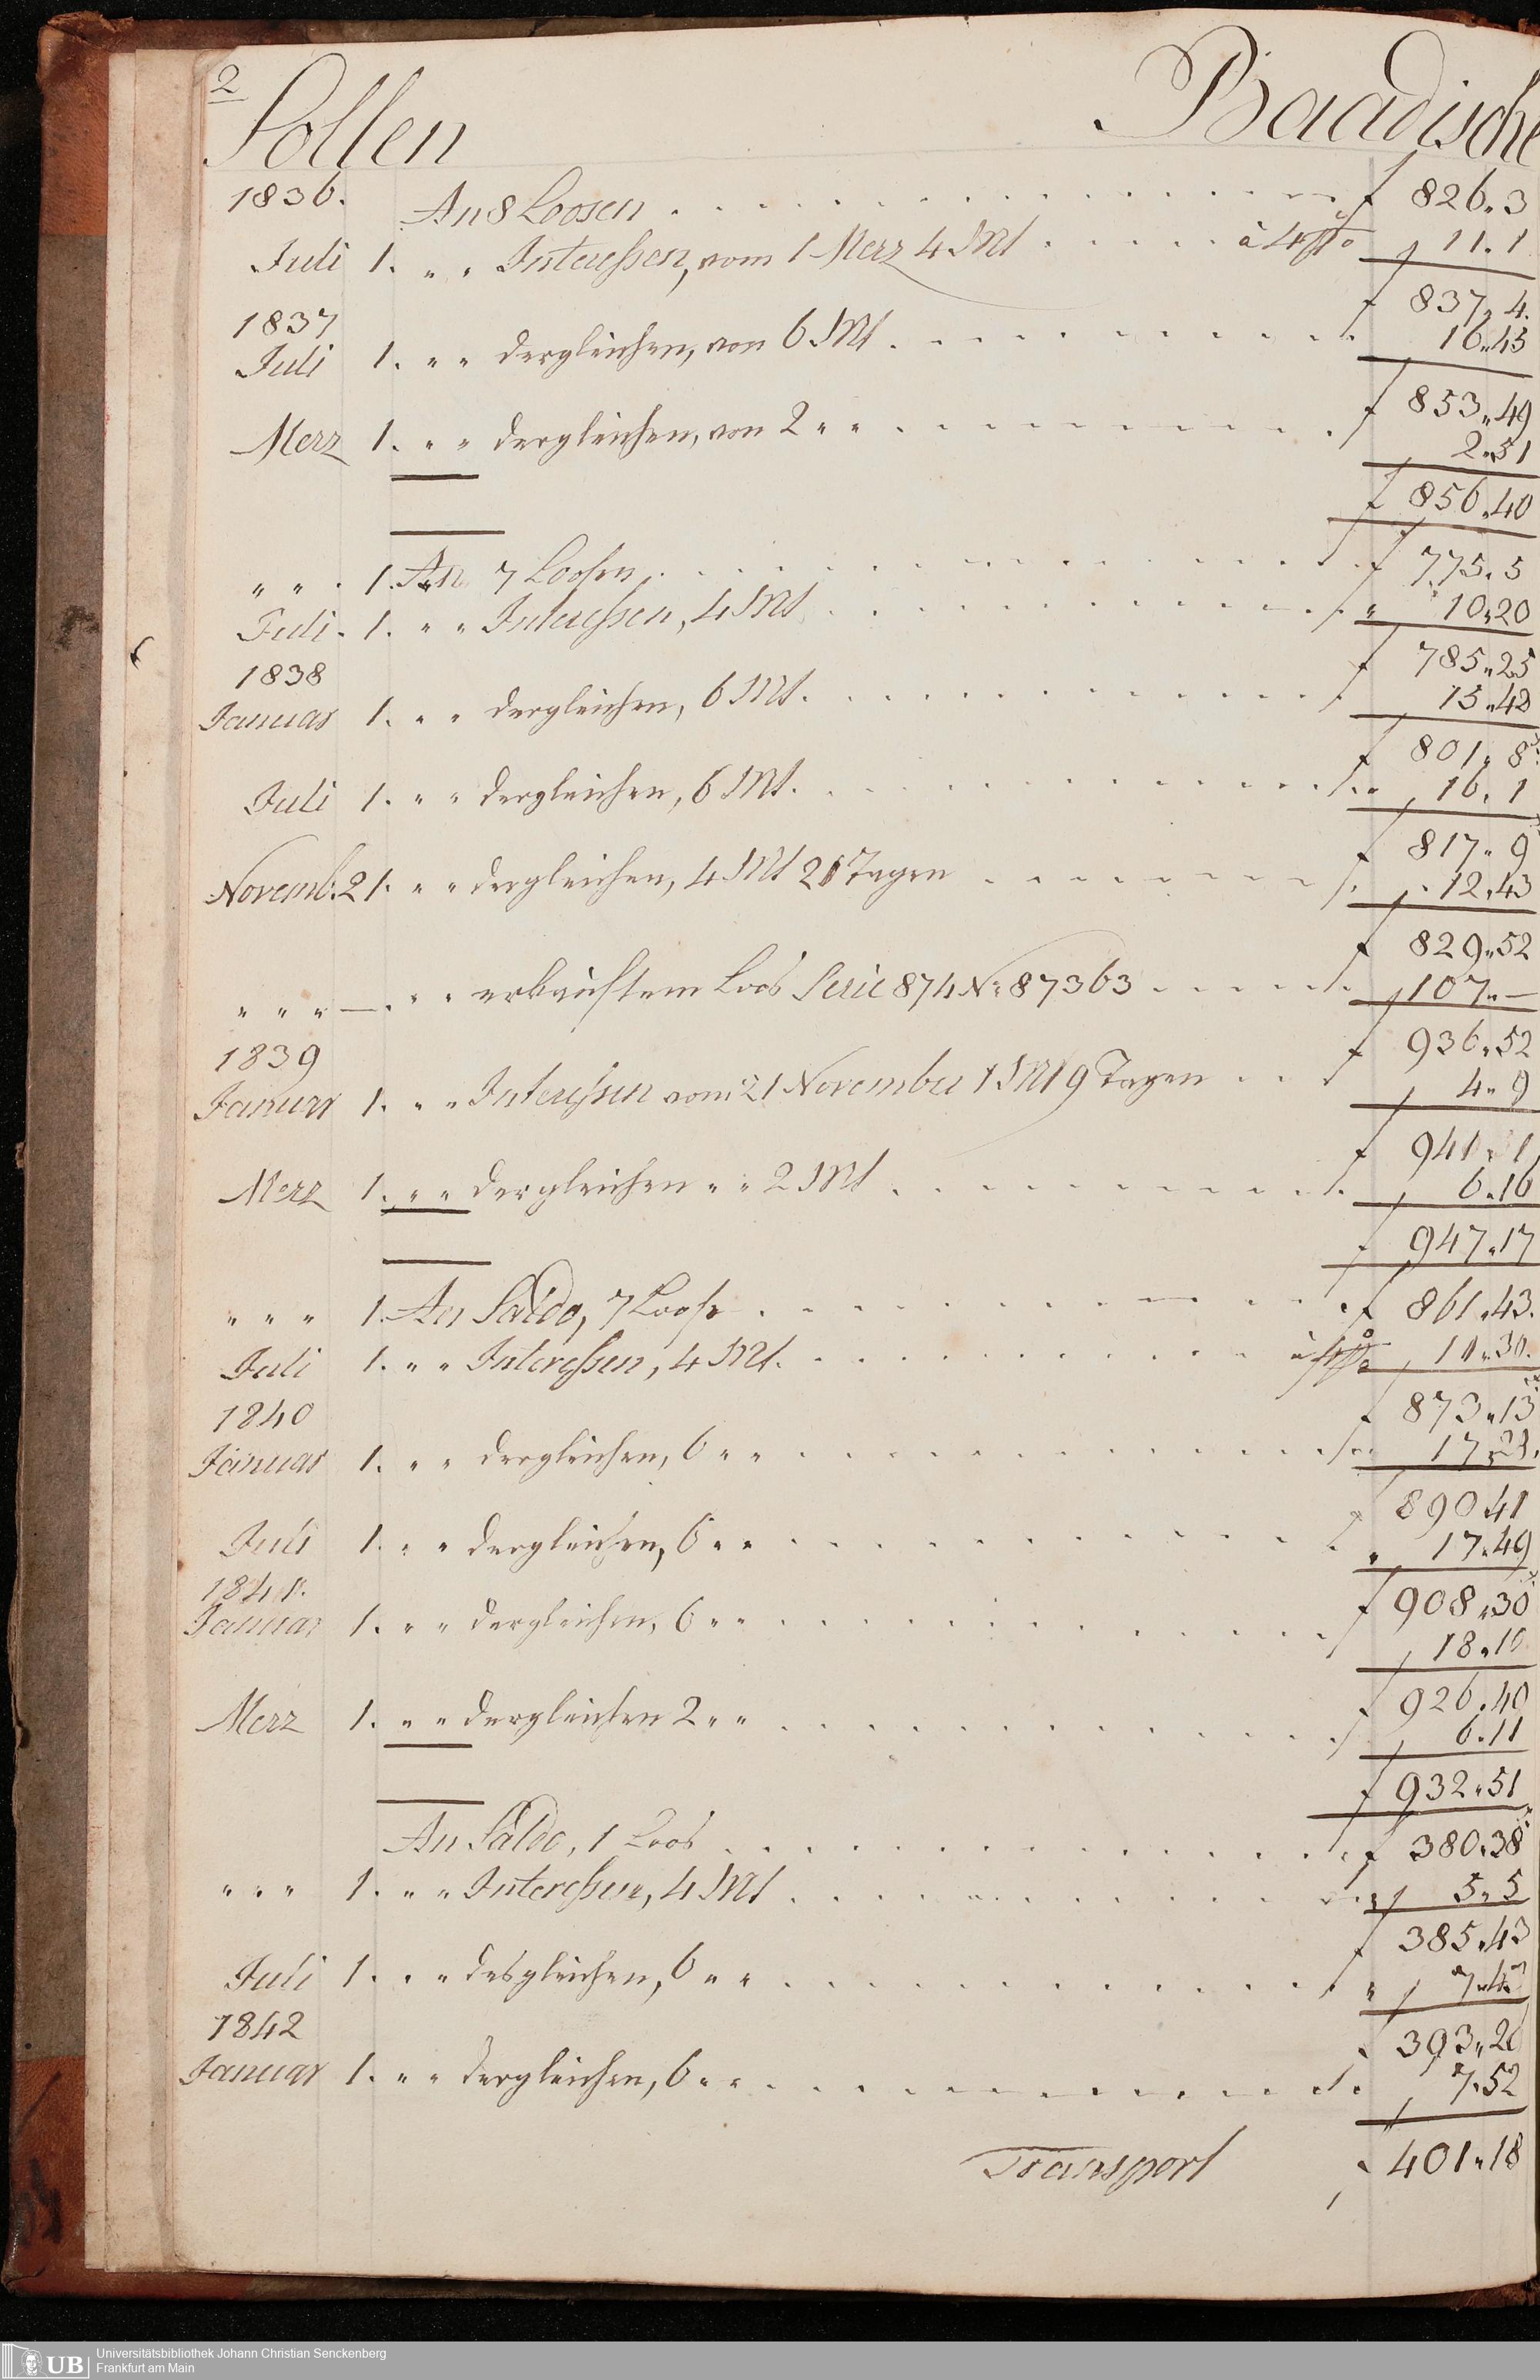 2
Sollen Baadische
1836. An 8 Loosen f 826.3
Juli 1. " " Interessen, vom 1 Merz 4 Mt à 4 p% 11.1
f 837.4.
1837
Juli 1. " " dergleichen, von 6 Mt 16.45
f 853.49
Merz 1. " " dergleichen, von 2 " " 2.51
f 856.40
" " . 1. An 7 Loosen f 775.5
Juli. 1. " " Interessen, 4 Mt " 10.20
f 785.25
1838
Januar 1. " " dergleichen, 6 Mt. 15.42
f 801.8
Juli 1. " " dergleichen, 6 Mt. " 16.1
f 817.9
Novemb. 21. " " dergleichen, 4 Mt 21 Tagen 12.43
f 829.52
" " " — . " " erkauftem Loos Serie 874 No 87363 107.—
f 936.52
1839
Januar 1. " " Interessen vom 21 November 1 Mt 9 Tagen 4.9
f 941.1
Merz 1. " " dergleichen " " 2 Mt 6.16
f 947.17
" " " 1. An Saldo, 7 Loose f 861.43.
Juli 1. " " Interessen, 4 Mt. à 4 p% 11.30.
f 873.13
1840
Januar 1. " " dergleichen, 6 " " 17
f 890 41
Juli 1. " " dergleichen, 6 " " " 17.49
1841. f 908.30
Januar 1. " " dergleichen, 6 " " 18.10
926.40
Merz 1. " " dergleichen 2 " " 6.11
f 932.51
An Saldo, 1 Loos f 380.38
" " " 1. " " Interessen, 4 Mt " 5.5
f 385.43
Juli 1. " " desgleichen, 6 " " "
1842 393.20
Januar 1. " " dergleichen, 6 " " 7.52
Transport 401.18
UB Universitätsbibliothek Johann Christian Senckenberg
Frankfurt am Main